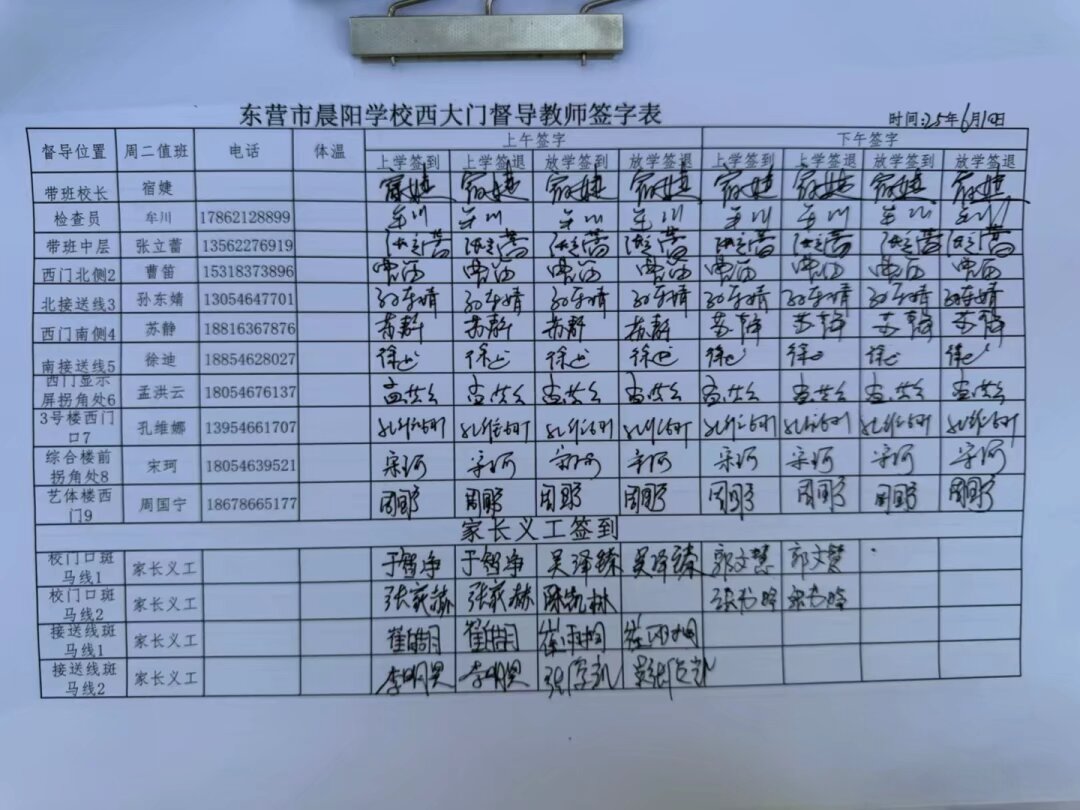 东营市晨阳学校西大门督导教师签字表
时间:25年6月10日
督导位置 周二值班 电话 体温 上午签字 下午签字
上学签到 上学签退 放学签到 放学签退 上学签到 上学签退 放学签到 放学签退
带班校长 宿婕 宿婕 宿婕 宿婕 宿婕 宿婕 宿婕 宿婕 宿婕
检查员 牟川 17862128899 牟川 牟川 牟川 牟川 牟川 牟川 牟川 牟川
带班中层 张立蕾 13562276919 张立蕾 张立蕾 张立蕾 张立蕾 张立蕾 张立蕾 张立蕾 张立蕾
西门北侧2 曹笛 15318373896 曹笛 曹笛 曹笛 曹笛 曹笛 曹笛 曹笛 曹笛
北接送线3 孙东婧 13054647701 孙东婧 孙东婧 孙东婧 孙东婧 孙东婧 孙东婧 孙东婧 孙东婧
西门南侧4 苏静 18816367876 苏静 苏静 苏静 苏静 苏静 苏静 苏静 苏静
南接送线5 徐迪 18854628027 徐迪 徐迪 徐迪 徐迪 徐迪 徐迪 徐迪 徐迪
西门显示
屏拐角处6 孟洪云 18054676137 孟洪云 孟洪云 孟洪云 孟洪云 孟洪云 孟洪云 孟洪云 孟洪云
3号楼西门
口7 孔维娜 13954661707 孔维娜 孔维娜 孔维娜 孔维娜 孔维娜 孔维娜 孔维娜 孔维娜
综合楼前
拐角处8 宋珂 18054639521 宋珂 宋珂 宋珂 宋珂 宋珂 宋珂 宋珂 宋珂
艺体楼西
门9 周国宁 18678665177 周国宁 周国宁 周国宁 周国宁 周国宁 周国宁 周国宁 周国宁
家长义工签到
校门口斑
马线1 家长义工 于智净 于智净 吴泽臻 吴泽臻 郭文慧 郭文慧
校门口斑
马线2 家长义工 陈凯林
接送线斑
马线1 家长义工
接送线斑
马线2 家长义工 李明昊 李明昊